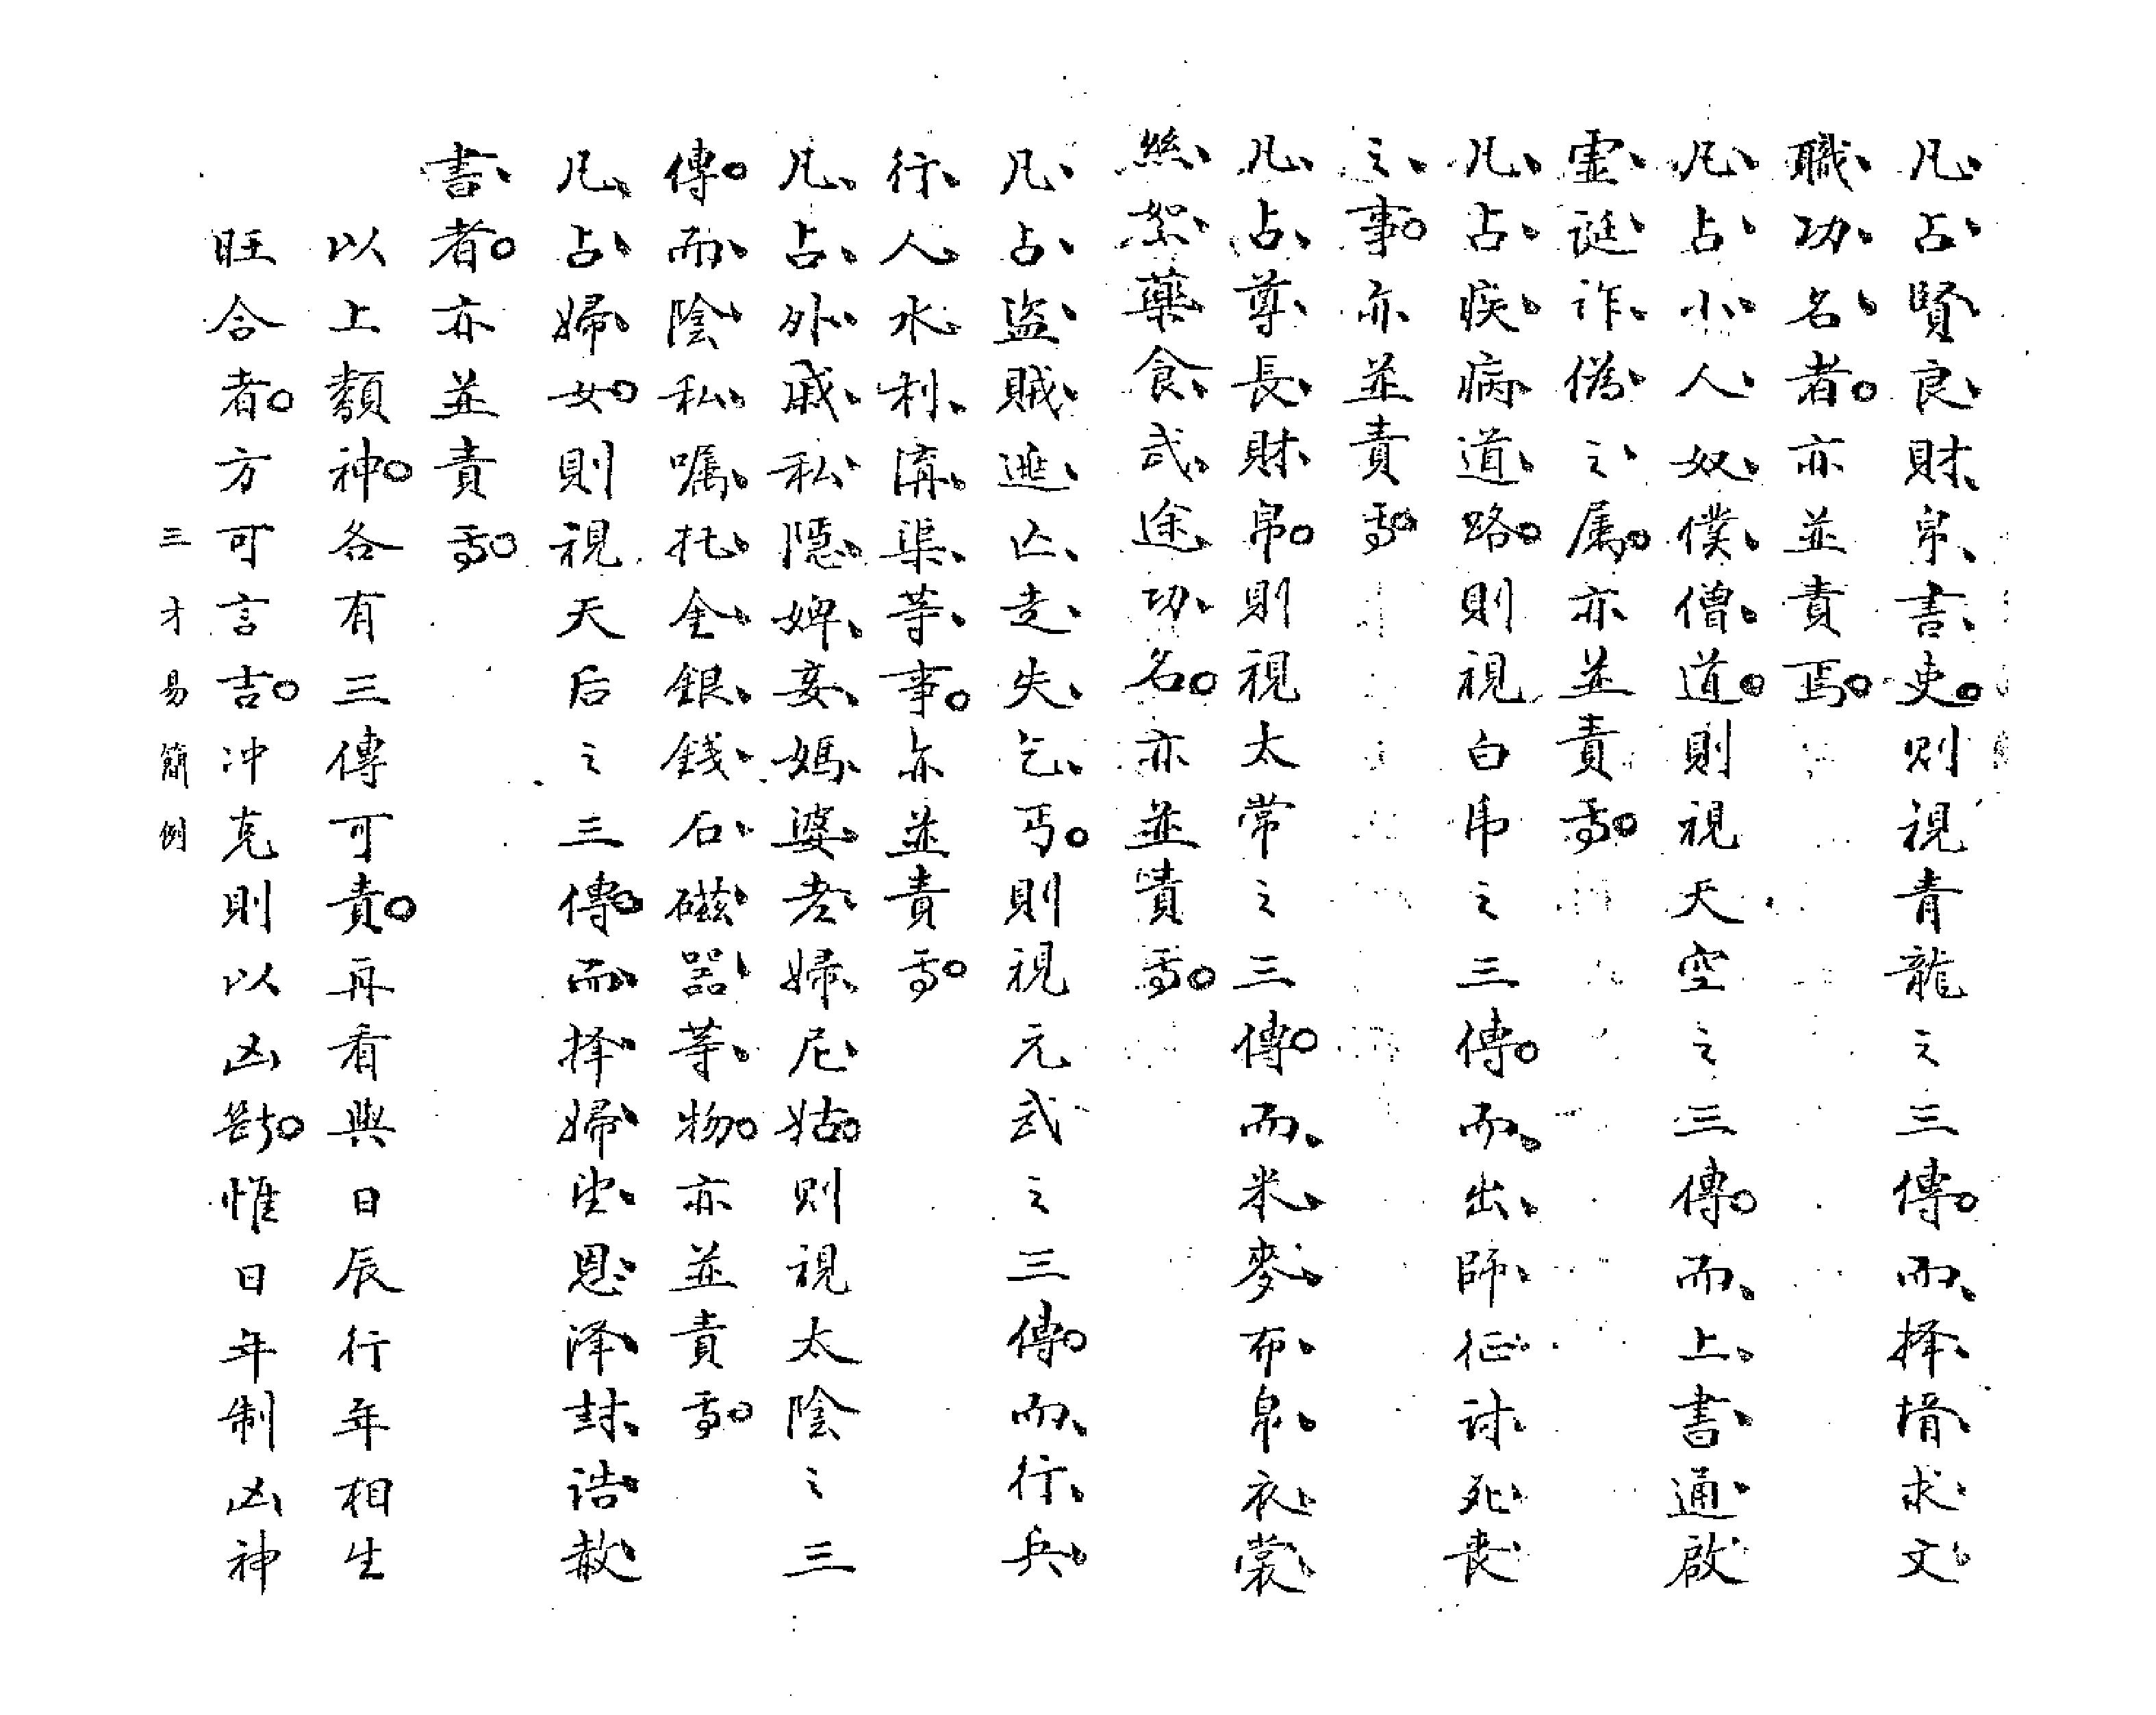 凡占賢良財帛書吏。則視青龍之三傳。而择壻求文
職功名者。亦並責焉。
凡占小人奴僕僧道。則視天空之三傳。而上書通啟
虛誕诈偽之属。亦並責焉。
凡占疾病道路。則視白虎之三傳。而出師征討死丧
之事。亦並責焉。
凡占尊長財帛。則視太常之三傳。而米麥布帛衣裳
絲絮藥食武途功名。亦並責焉。
凡占盜賊逃亡走失乞丐。則視元武之三傳。而行兵
行人水利溝渠等事。亦並責焉。
凡占外戚私隱婢妾媽婆老婦尼姑。則視太陰之三
傳。而陰私嘱托金銀錢石磁器等物。亦並責焉。
凡占婦女。則視天后之三傳。而择婦望恩泽封诰赦
書者。亦並責焉。
以上類神。各有三傳可責。再看與日辰行年相生
旺合者。方可言吉。冲克則以凶断。惟日年制凶神
三才易簡例